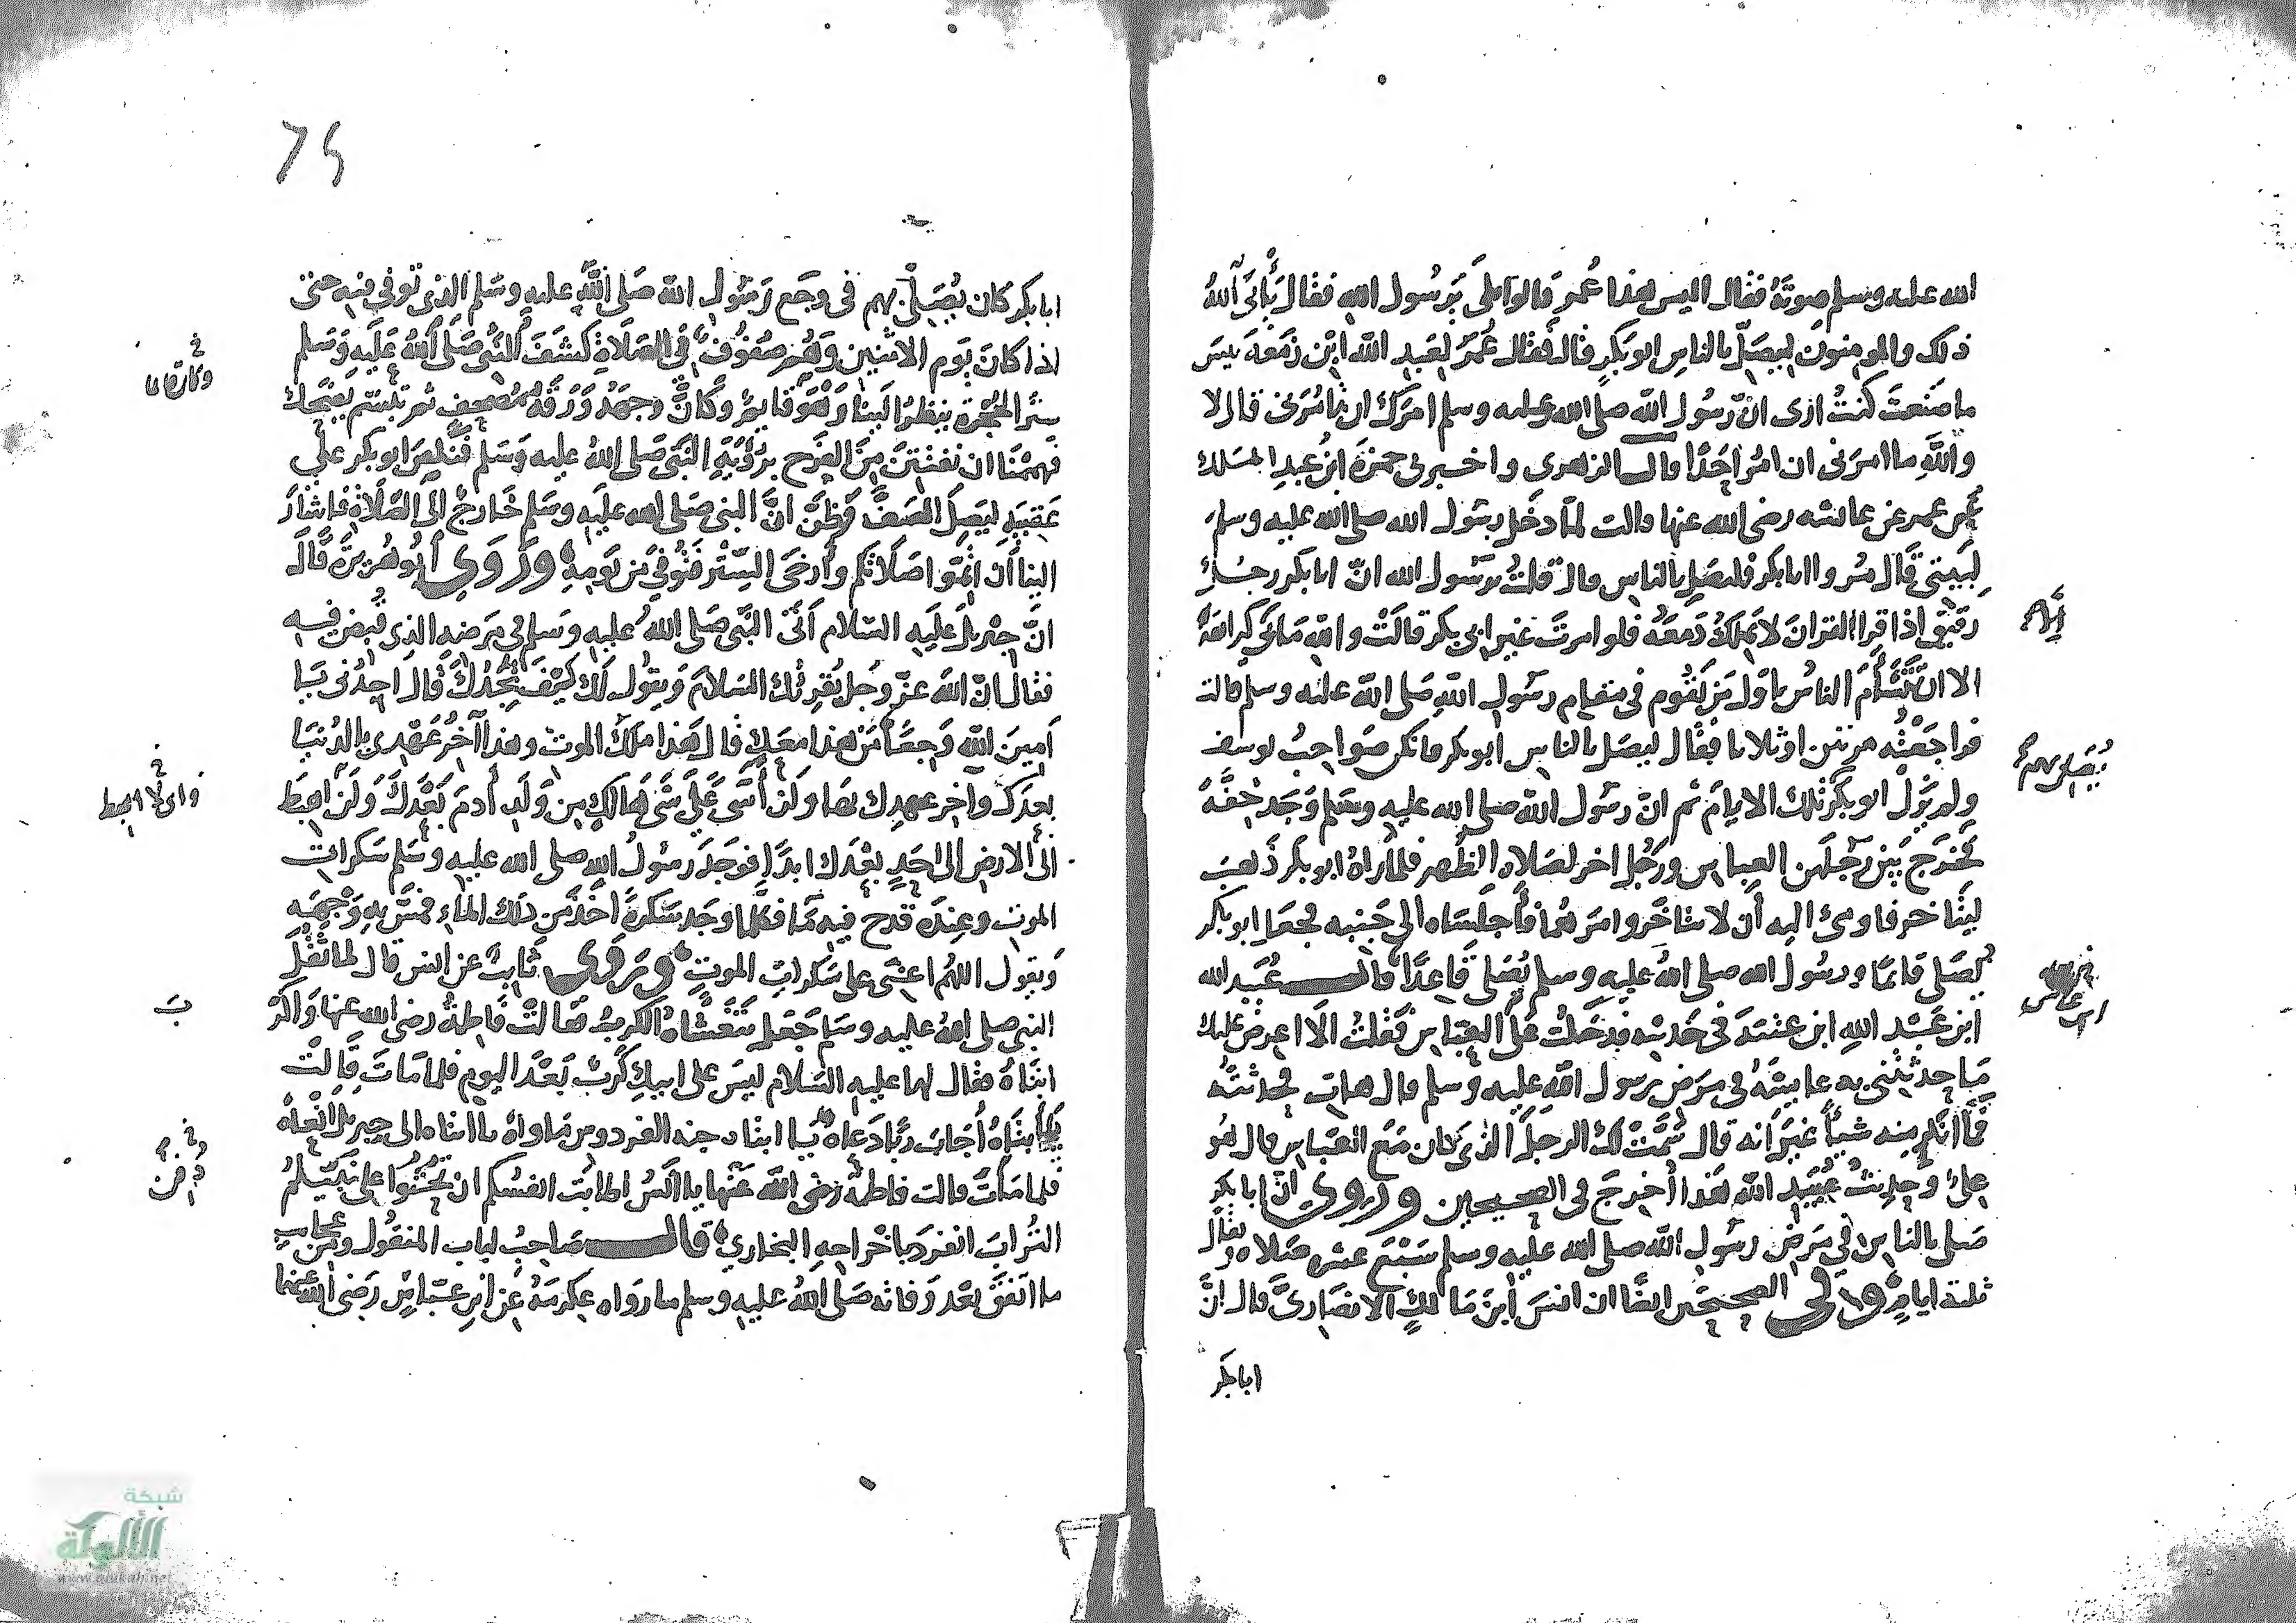 الله عليه وسلم صوته فقال اليس هذا عمر قالوا بلى يرسول الله فقال يأبى الله
ذلك والمومنون ليصلّ بالناس ابو بكر قال فقال عمر لعبد الله ابن زمعه بيس
ما صنعت كنت ارى ان رسول الله صلى الله عليه وسلم امرك ان تامرنى قال لا
والله ما امرنى ان امر احدا قال الزهرى واخبرنى حمزة ابن عبد الملك
عمر عن عائشه رضى الله عنها قالت لما دخل رسول الله صلى الله عليه وسلم
لبيتى قال مروا ابا بكر فليصل بالناس قال قلت يرسول الله ان ابا بكر رجل
رقيق اذا قرا القران لا يملك دمعه فلو امرت غير ابى بكر قالت والله ما بى كراهة
الا ان يتشاءم الناس باول من يقوم فى مقام رسول الله صلى الله عليه وسلم قالت
فراجعته مرتين او ثلاثا فقال ليصل بالناس ابو بكر فانكن صواحب يوسف
ولم يزل ابو بكر تلك الايام ثم ان رسول الله صلى الله عليه وسلم وجد خفة
فخرج بين رجلين العباس ورجل اخر لصلاه الظهر فلما راه ابو بكر ذهب
ليتاخر فاومى اليه ان لا يتاخر وامرهما فأجلساه الى جنبه فجعل ابو بكر
يصلى قائما ورسول الله صلى الله عليه وسلم يصلى قاعدا قال عبيد الله
ابن عبد الله ابن عتبة فى حديثه فدخلت على العباس فقلت الا اعرض عليك
ما حدثتنى به عايشة فى مرض رسول الله عليه وسلم قال هات فحدثته
فما انكر منه شيأ غير انه قال سمت لك الرجل الذى كان مع العباس قال هو
على وحديث عبيد الله هذا أخرج فى الصحيحين وروى ان ابا بكر
صلى بالناس فى مرض رسول الله صلى الله عليه وسلم سبع عشره صلاه ويقال
ثلثة ايام وفى الصحيحين ايضا ان انس ابن مالك الانصارى قال ان
ابا بكر
يصلى بهم
ابن عباس
٧٤
ابا بكر كان يصلى بهم فى وجع رسول الله صلى الله عليه وسلم الذى توفي فيه حتى
اذا كان يوم الاثنين وهم صفوف فى الصلاة كشف النبى صلى الله عليه وسلم
ستر الحجرة ينظر الينا وهو قايم وكان وجهه ورقة مصحف ثم تبسم يضحك
فهممنا ان نفتتن من الفرح برؤية النبى صلى الله عليه وسلم فنكص ابو بكر على
عقبيه ليصل الصف وظن ان النبى صلى الله عليه وسلم خارج الى الصلاة فاشار
الينا ان اتموا صلاتكم وأرخى الستر فتوفي من يومه وروى ابو هريرة قال
ان جبريل عليه السلام اتى النبى صلى الله عليه وسلم فى مرضه الذى قبض فيه
فقال ان الله عز وجل يقرئك السلام ويقول لك كيف تجدك قال اجدنى يا
امين الله وجعا من هذا معك قال هذا ملك الموت وهذا آخر عهدى بالدنيا
بعدك وآخر عهدك بها ولن أسى على شى هالك من ولد أدم بعدك ولن اهبط
الى الارض الى احد بعدك ابدا فوجد رسول الله صلى الله عليه وسلم سكرات
الموت وعنده قدح فيه ما فكلما وجد سكرة اخذ من ذلك الماء فمسح به وجهه
ويقول اللهم اعنى على سكرات الموت وروى ثابت عن انس قال لما ثقل
النبى صلى الله عليه وسلم جعل يتغشاه الكرب فقالت فاطمة رضى الله عنها واكرب
ابتاه فقال لها عليه السلام ليس على ابيك كرب بعد اليوم فلما مات قالت
يا ابتاه أجاب ربا دعاه يا ابتاه جنه الفردوس ماواه يا ابتاه الى جبريل انعاه
فلما مات قالت فاطمة رضى الله عنها يا انس اطابت انفسكم ان تحثوا على نبيكم
التراب انفرد باخراجه البخاري قال صاحب لباب المنقول ومن عجايب
ما اتفق بعد وفاته صلى الله عليه وسلم ما رواه عكرمة عن ابن عباس رضى الله عنهما
ب
دفن
شبكة
الألوكة
www.alukah.net